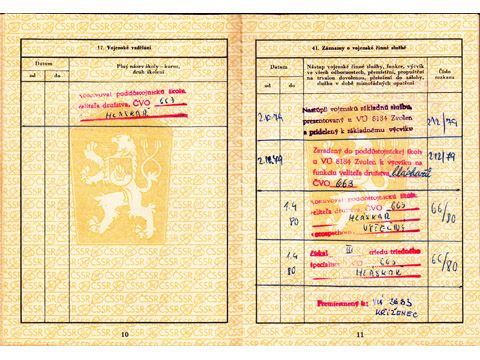 17. Vojenské vzdělání
Datum
od
do
Plný název školy - kursu,
druh školení
absolvoval poddôstojnickú školu
veliteľa družstva, ČVO 663
HLÁSKAR
10
41. Záznamy o vojenské činné službě
Datum
od
do
Nástup vojenské činné služby, funkce, výcvik
ve všech odbornostech, přemístění, propuštění
na trvalou dovolenou, přeložení do zálohy,
služba v době mimořádných opatření
Číslo
rozkazu
2.10.79
Nastúpil vojenskú základnú službu,
prezentovaný u VÚ 8134 Zvolen
a pridelený k základnému výcviku
212/79
Zaradený do poddôstojnickej školy
u VÚ 8134 Zvolen k výcviku na
funkciu veliteľa družstva hláskař
ČVO 663
212/79
1.4
80
absolvoval poddôstojnickú školu
veliteľa družstva, ČVO 663
HLÁSKAR
s prospechom VÝTEČNÝ
66/80
1.4
80
Získal III triedu triedneho
špecialistu ČVO 663
HLÁSKAR
66/80
Premiestnený k: VÚ 3633
KŘÍŽENEC
11